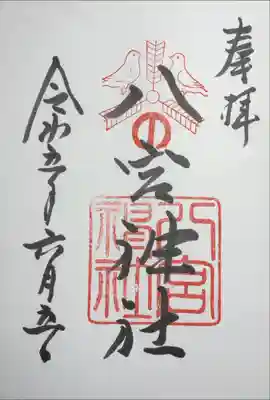 奉拝
八宮神社
八宮
神社
令和五年六月五日